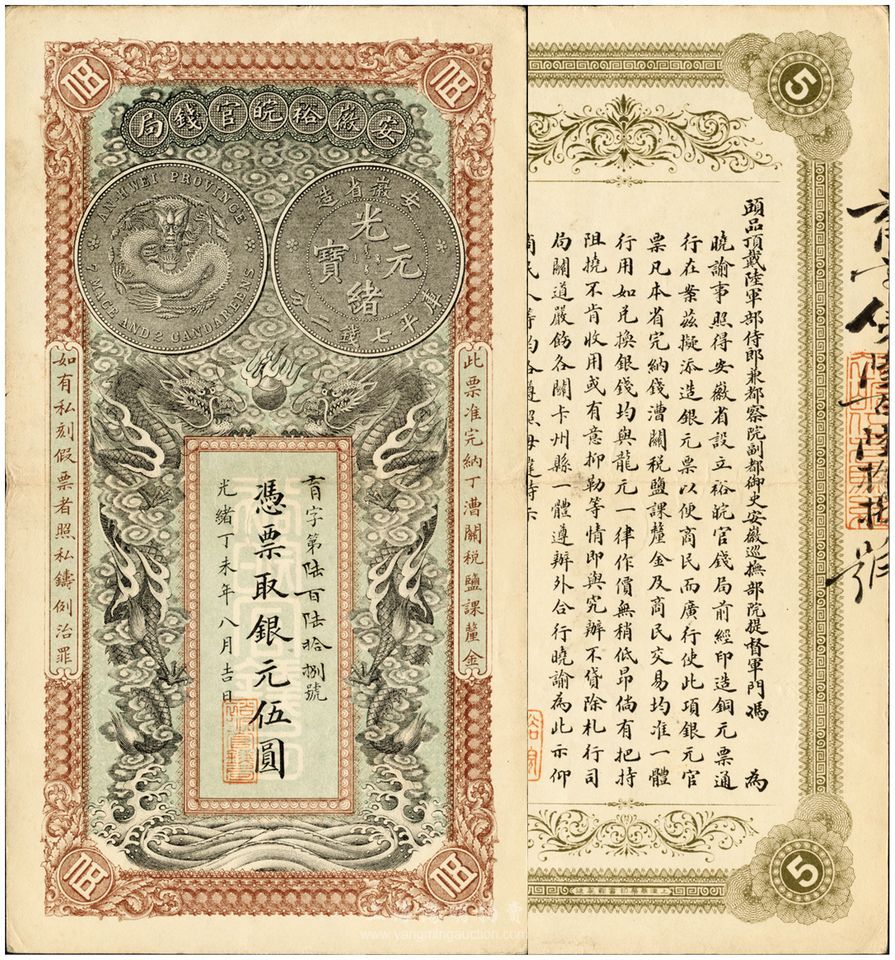 安徽裕皖官錢局
AN-HWEI PROVINCE
7 MACE AND 2 CANDAREENS
安徽省造
光緒元寶
庫平七錢二分
此票准完納丁漕關稅鹽課釐金
育字第陸百陸拾捌號
憑票取銀元伍圓
光緒丁未年八月吉日
如有私刻假票者照私鑄例治罪
伍
伍
伍
伍
5
5
頭品頂戴陸軍部侍郎兼都察院副都御史安徽巡撫部院提督軍門馮 為
曉諭事照得安徽省設立裕皖官錢局前經印造銅元票通
行在案茲擬添造銀元票以便商民而廣行使此項銀元官
票凡本省完納錢漕關稅鹽課釐金及商民交易均准一體
行用如兌換銀錢均與龍元一律作價無稍低昂倘有把持
阻撓不肯收用或有意抑勒等情即與究辦不貸除札行司
局關道嚴飭各關卡州縣一體遵辦外合行曉諭為此示仰
商民人等均各遵照毋違特示
www.yangmingauction.com